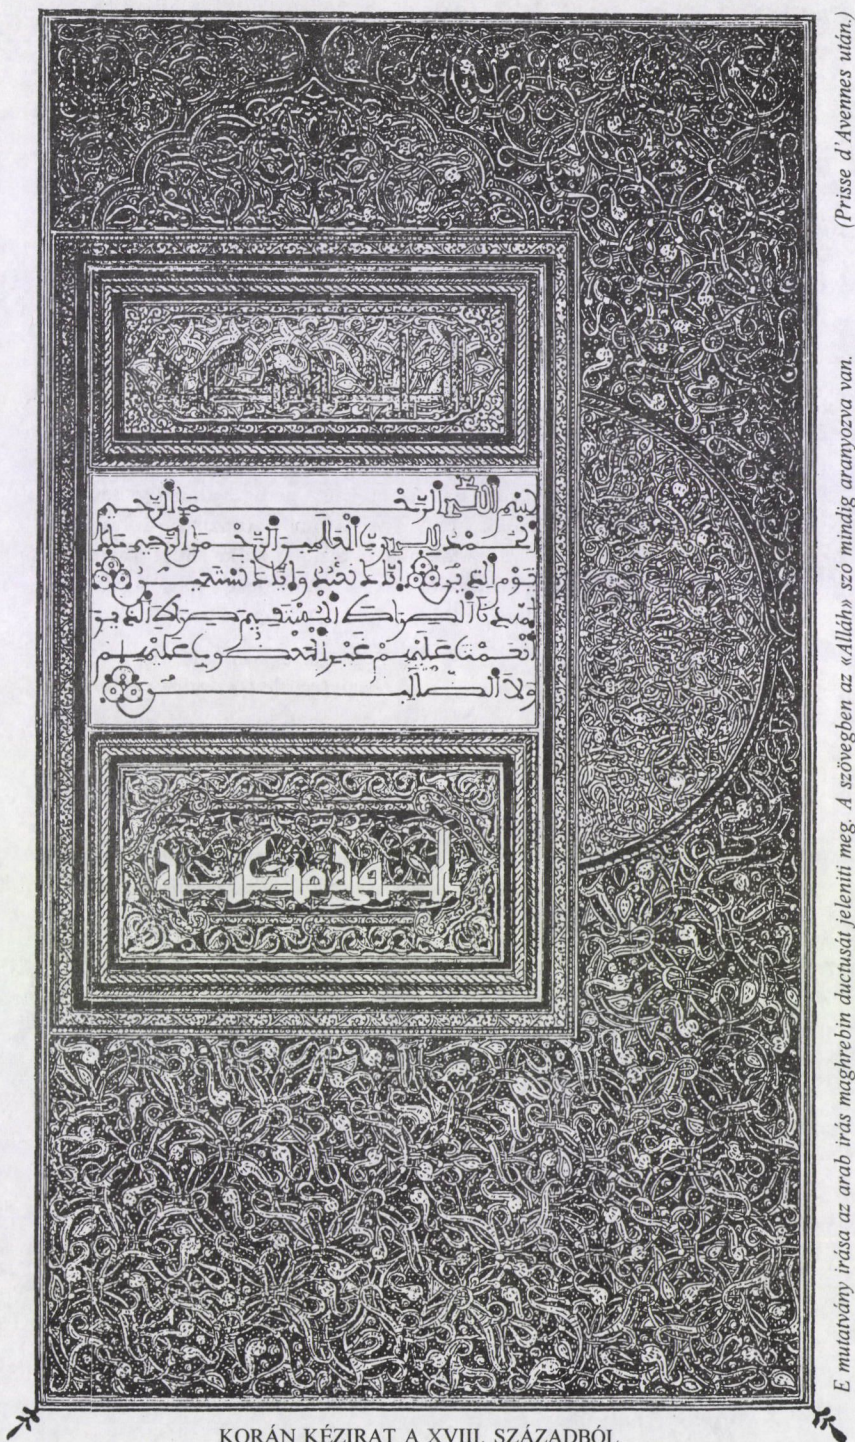 بسم الله الرحمن الرحيم
الحمد لله رب العالمين الرحمن الرحيم ملك
يوم الدين إياك نعبد وإياك نستعين
اهدنا الصراط المستقيم صراط الذين
أنعمت عليهم غير المغضوب عليهم
ولا الضالين
KORÁN KÉZIRAT A XVIII. SZÁZADBÓL.
E mutatvány irása az arab irás maghrebin ductusát jeleníti meg. A szövegben az «Alláh» szó mindig aranyozva van. (Prisse d'Avennes után.)